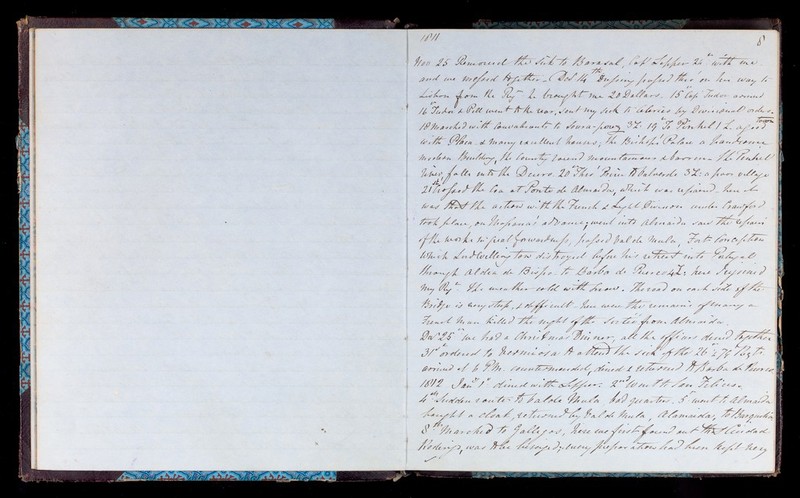 1811
8
Nov 25 Removed the Sick to Barasal, Capt Lepper 24th with me
and we messed together - Decr 14th Dufsing passed this on his way to
Lisbon from the Regt he brought me 20 Dollars. 15th Capt Tudor arrived
16th Tudor & Pitt went to the rear, sent my sick to Celerico by Divisional order.
18 Marched with Convalescents to Sovra-povez 3L. 19th To Pinhel 1 L. a good town
with Plaza & many excellent houses, The Bishop's Palace a handsome
modern Building, the country round mountainous & barren. The Pinhel
River falls into the Douro. 20th Thro' Prin to Valverde 3L a poor village
21st Crossed the Coa at Ponte de Almeida, which was repaired. here it
was that the action with the French & Light Division under Craufurd
took place, on Massena's advance; went into Almeida saw the repairs
of the works in great forwardness, passed Val de Mula, Fort Conception
which Lord Wellington destroyed before his retreat into Portugal
through Aldea de Bispo to Barba de Puerco 4L: here I rejoined
My Regt The weather cold with snow. The road on each side of the
Bridge is very steep, & difficult. here were the remains of many a
French Man killed the night of the Sortie from Almeida.
Decr 25th we had a Christmas Dinner, all the officers dined together
31st ordered to Hermiosa to attend the sick of the 26 & 76 Regts
arrived at 6 P.M. countermanded, dined & returned to Barba de Puerco
1812 Jany 1st dined with Lepper. 2nd Went to San Felices
4th Sudden route to Val de Mula bad quarter. 5 went to Almeida
bought a cloak, returned by Val de Mula, Alameida, to Barquilla
8th Marched to Gallegos, here we first found out that Ciudad
Rodrigo, was to be besieged, every preparation had been kept very